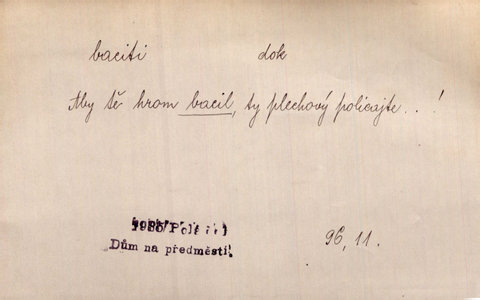 baciti dok
Aby tě hrom bacil, ty plechový policajte...!
Dům na předměstí.
96, 11.